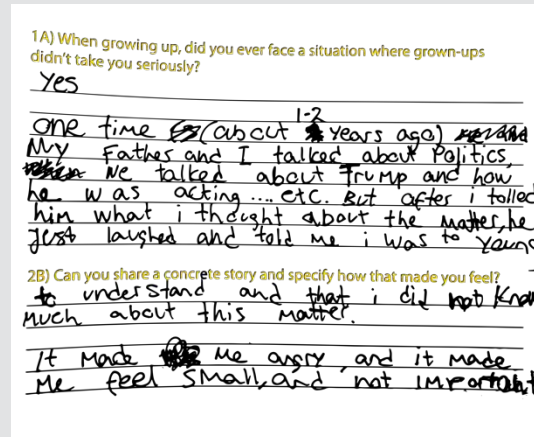 1A) When growing up, did you ever face a situation where grown-ups
didn't take you seriously?
Yes
1-2
one time (about years ago)
My Father and I talked about Politics,
We talked about Trump and how
he was acting .... etc. But after i tolled
him what i thought about the matter, he
Just laughed and told me i was to young
2B) Can you share a concrete story and specify how that made you feel?
to understand and that i did not Know
Much about this matter.
It Made Me angry and it made
Me feel Small, and not important